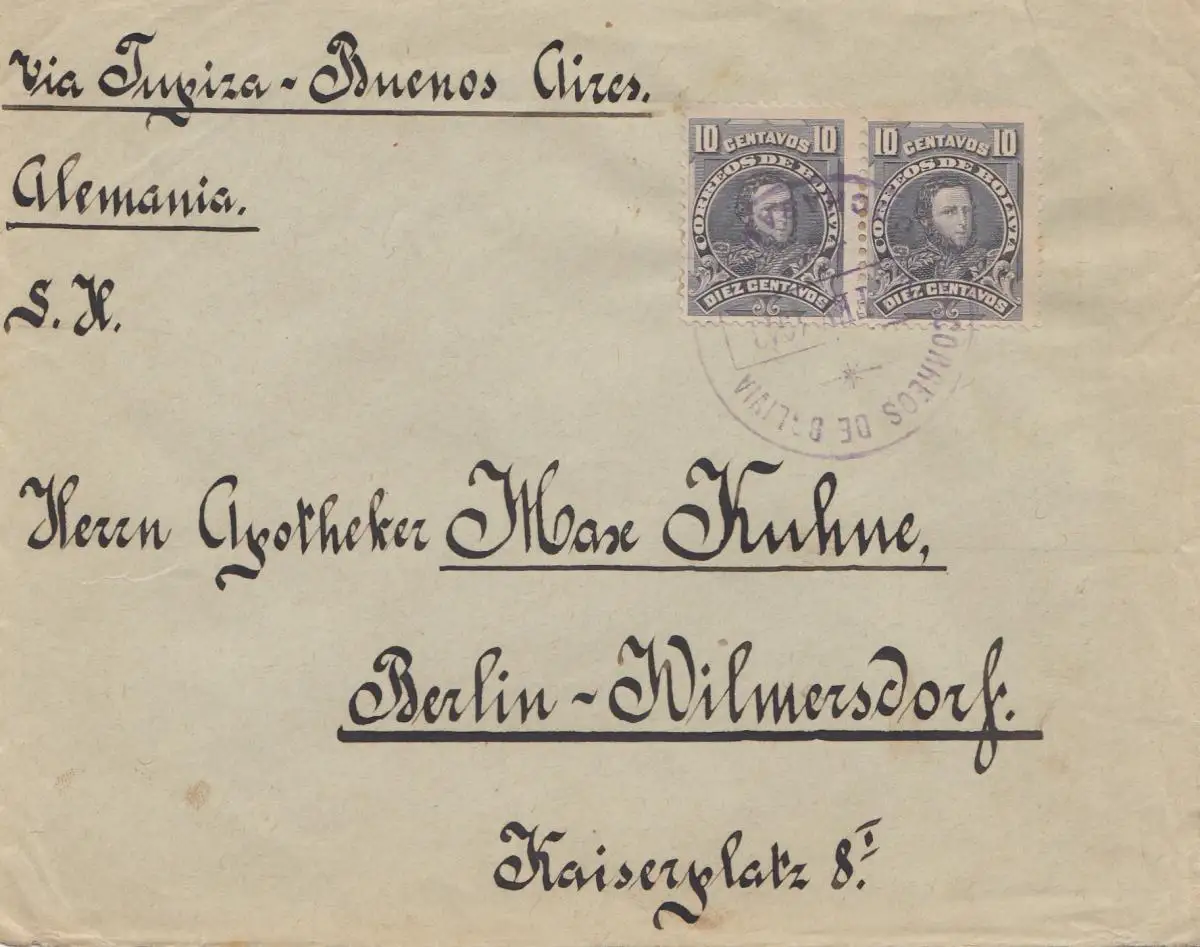 Via Tupiza - Buenos Aires.
Alemania.
S. H.
10 CENTAVOS 10
CORREOS DE BOLIVIA
DIEZ CENTAVOS
10 CENTAVOS 10
CORREOS DE BOLIVIA
DIEZ CENTAVOS
CORREOS DE BOLIVIA
Herrn Apotheker Max Kuhne,
Berlin - Wilmersdorf.
Kaiserplatz 8.I